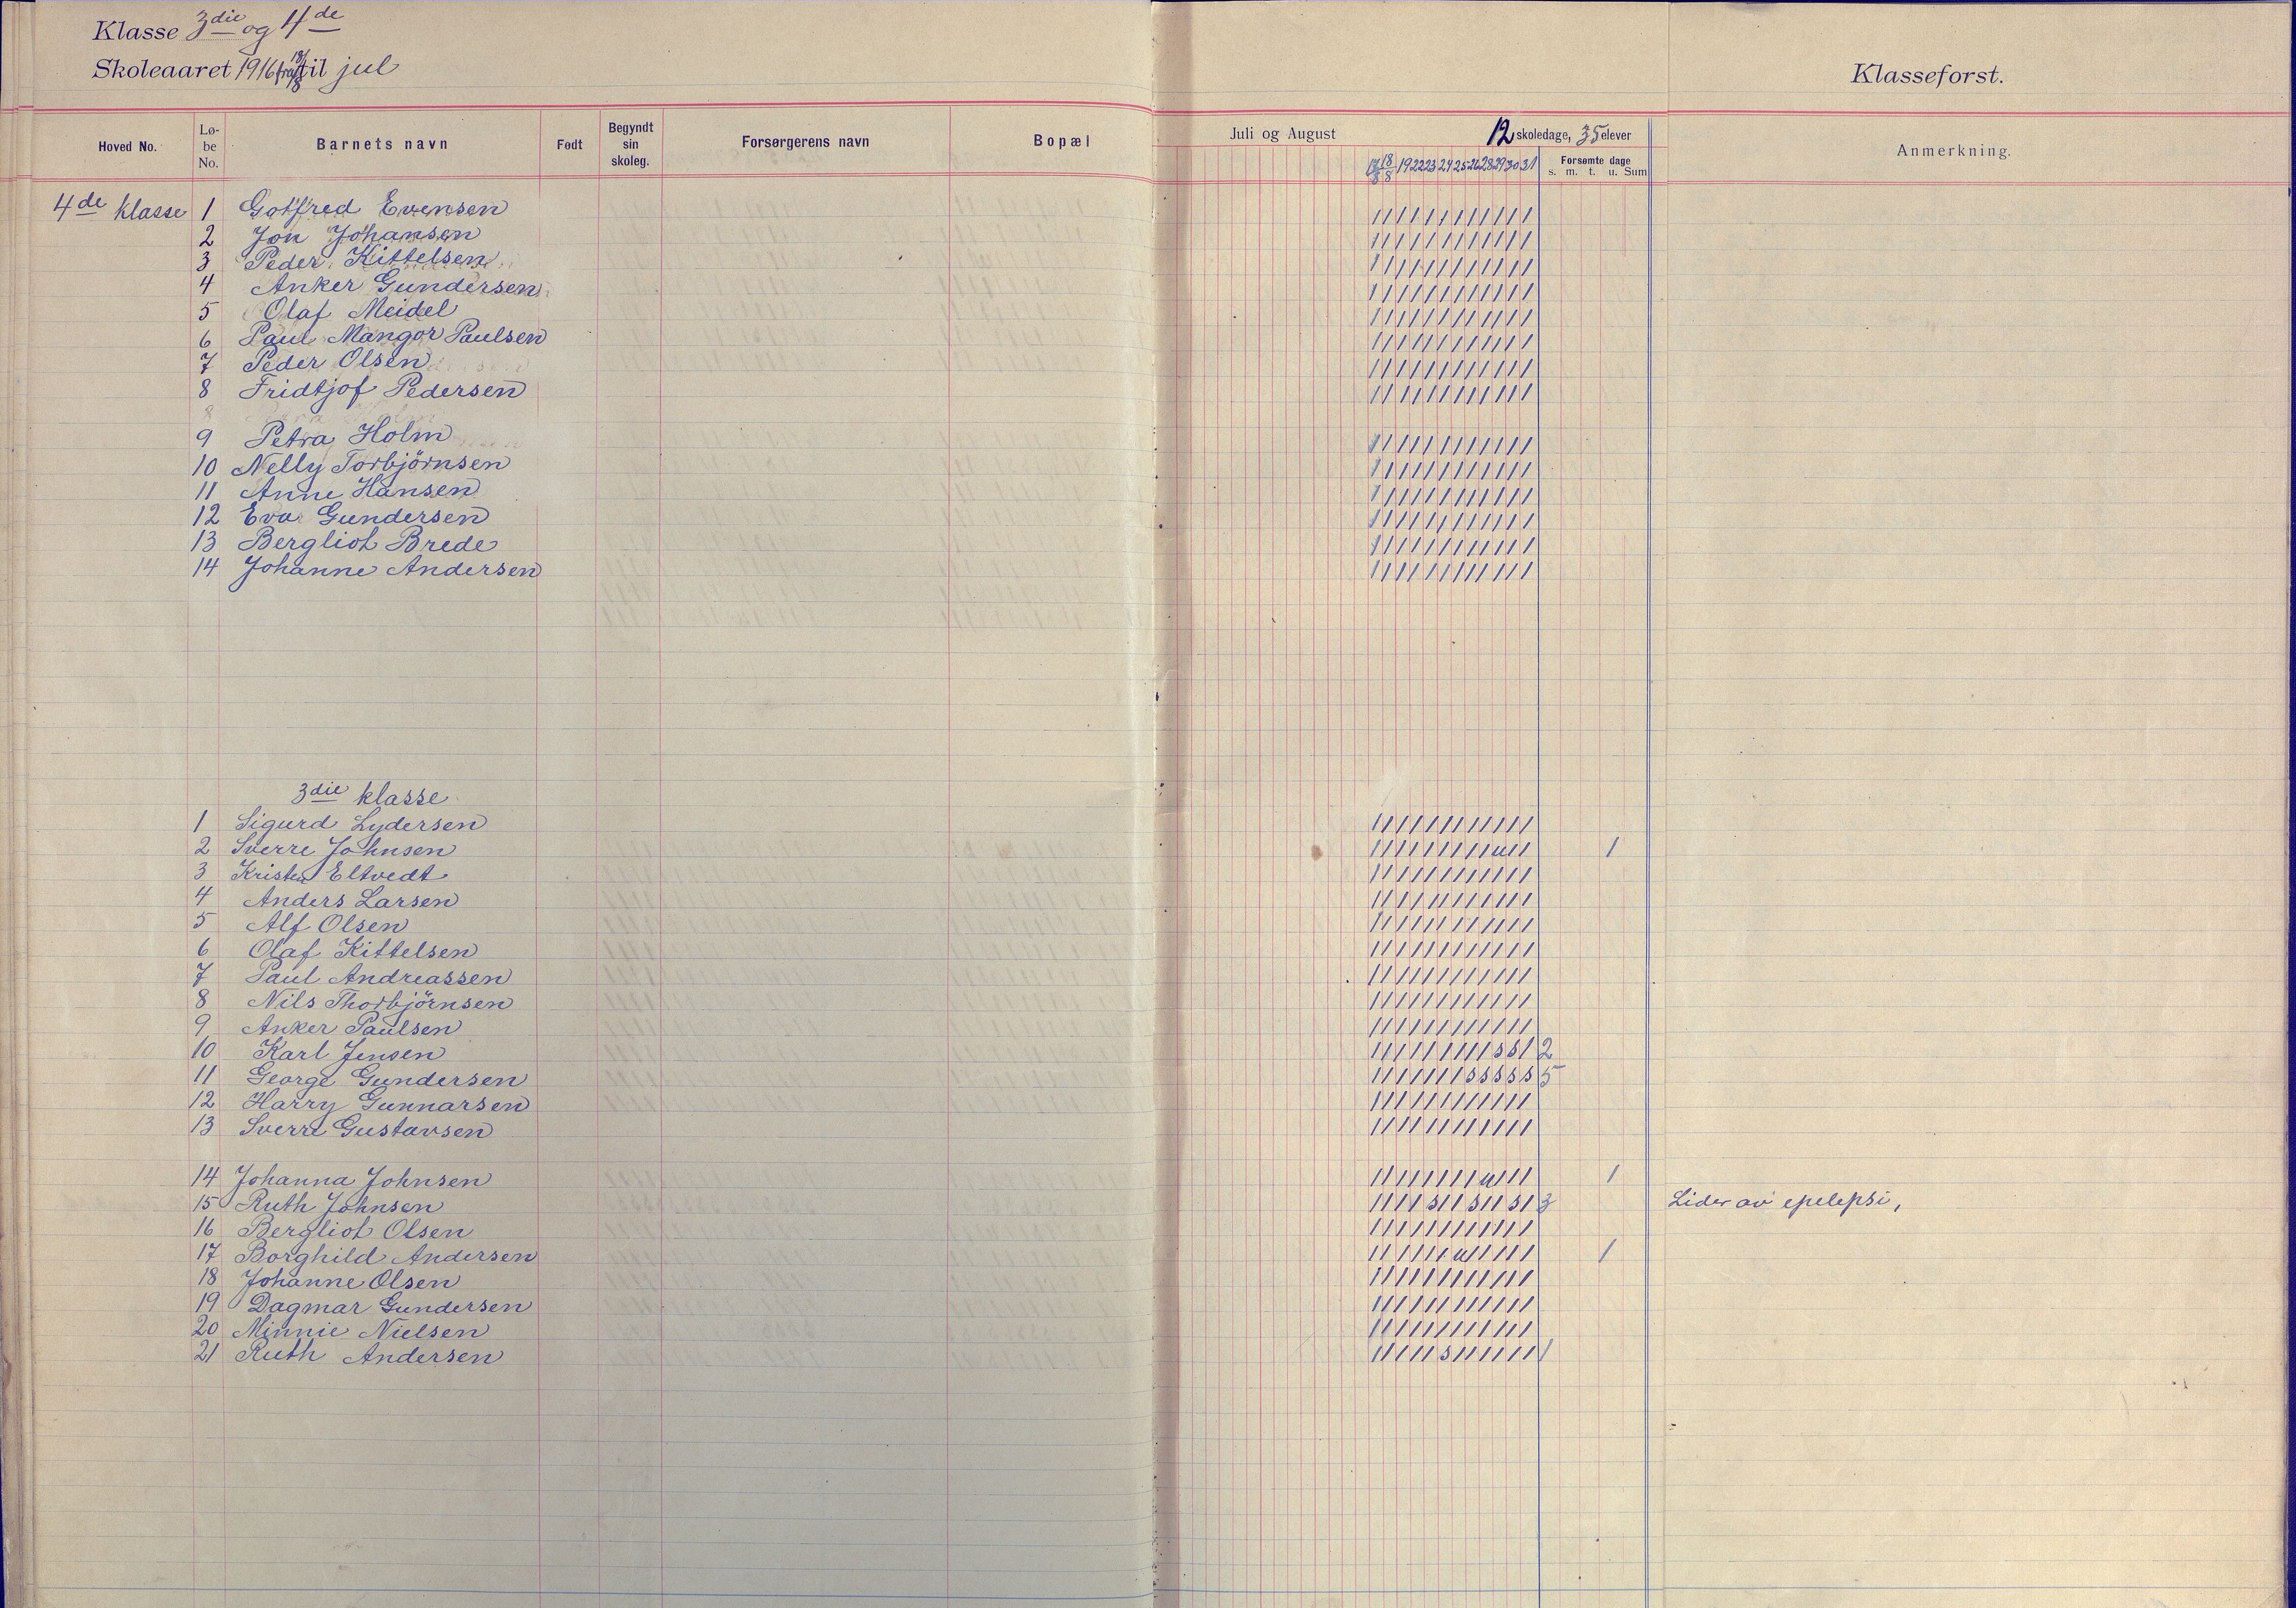 Klasse 3die og 4de
Skoleaaret 1916 fra 18/8 til jul
Klasseforst.
Hoved No.
Lø-
be
No.
Barnets navn
Født
Begyndt
sin
skoleg.
Forsørgerens navn
Bopæl
Juli og August
12 skoledage, 35 elever
17/8 18/8 19 22 23 24 25 26 28 29 30 31
Forsømte dage
s. m. t. u. Sum
Anmerkning.
4de klasse 1 Gotfred Evensen 111111111111
2 Jon Johansen 111111111111
3 Peder Kittelsen 111111111111
4 Anker Gundersen 111111111111
5 Olaf Meidel 111111111111
6 Paul Mangor Paulsen 111111111111
7 Peder Olsen 111111111111
8 Fridtjof Pedersen 111111111111
9 Petra Holm 111111111111
10 Nelly Torbjörnsen 111111111111
11 Anne Hansen 111111111111
12 Eva Gundersen 111111111111
13 Bergliot Brede 111111111111
14 Johanne Andersen 111111111111
3die klasse
1 Sigurd Lydersen 111111111111
2 Sverre Johnsen 111111111u11 1
3 Kristen Eltvedt 111111111111
4 Anders Larsen 111111111111
5 Alf Olsen 111111111111
6 Olaf Kittelsen 111111111111
7 Paul Andreassen 111111111111
8 Nils Thorbjörnsen 111111111111
9 Anker Paulsen 111111111111
10 Karl Jensen 111111111ss1 2
11 George Gundersen 1111111sssss 5
12 Harry Gunnarsen 111111111111
13 Sverre Gustavsen 111111111111
14 Johanna Johnsen 11111111u111 1
15 Ruth Johnsen 1111s11s11s1 3 Lider av epelepsi,
16 Bergliot Olsen 111111111111
17 Borghild Andersen 111111u11111 1
18 Johanne Olsen 111111111111
19 Dagmar Gundersen 111111111111
20 Minnie Nielsen 111111111111
21 Ruth Andersen 11111s111111 1